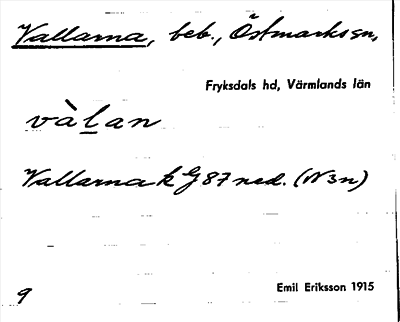 Vallarna, beb., Östmarks sn,
Fryksdals hd, Värmlands län
vàḻan
Vallarna k G 87 ned. (N3n)
9
Emil Eriksson 1915